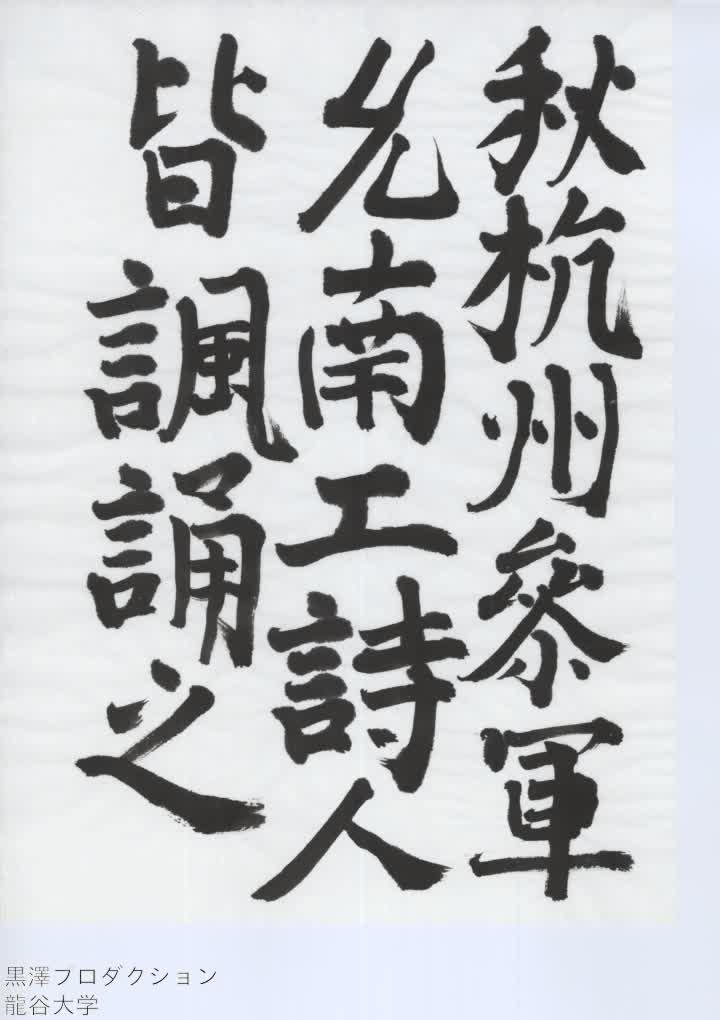 秋杭州參軍
允南工詩人
皆諷誦之
黒澤プロダクション
龍谷大学